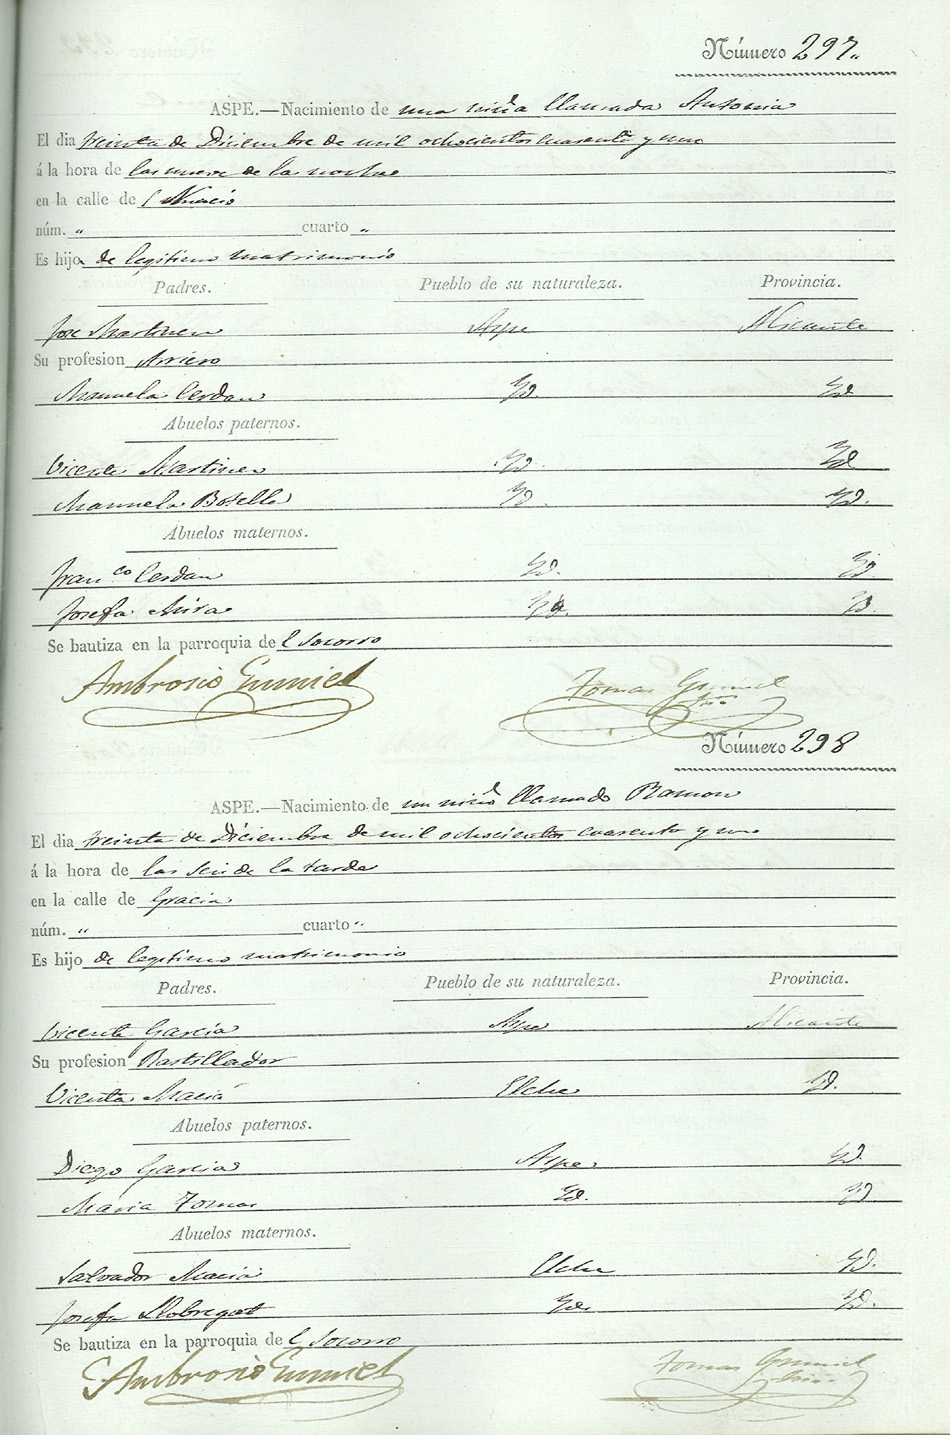 Número 297.
ASPE.—Nacimiento de una niña llamada Antonia
El dia treinta de Diciembre de mil ochocientos cuarenta y uno
á la hora de las nueve de la noche
en la calle de l Nuncio
núm. " cuarto "
Es hija de legitimo matrimonio
Padres. Pueblo de su naturaleza. Provincia.
Jose Martinez Aspe Alicante
Su profesion Arriero
Manuela Cerdan Yd. Yd
Abuelos paternos.
Vicente Martinez Yd. Yd
Manuela Botella Yd. Yd.
Abuelos maternos.
Franco Cerdan Yd. Yd
Josefa Mira Yd. Yd
Se bautiza en la parroquia de l Socorro
Ambrosio Gumiel Tomas Gumiel
Número 298
ASPE.—Nacimiento de un niño llamado Ramon
El dia treinta de Diciembre de mil ochocientos cuarenta y uno
á la hora de las seis de la tarde
en la calle de Gracia
núm. " cuarto "
Es hijo de legitimo matrimonio
Padres. Pueblo de su naturaleza. Provincia.
Vicente Garcia Aspe Alicante
Su profesion Rastillador
Vicenta Maciá Elche Yd.
Abuelos paternos.
Diego Garcia Aspe Yd.
Maria Tomas Yd. Yd
Abuelos maternos.
Salvador Maciá Elche Yd.
Josefa Llobregat Yd. Yd.
Se bautiza en la parroquia de l Socorro
Ambrosio Gumiel Tomas Gumiel